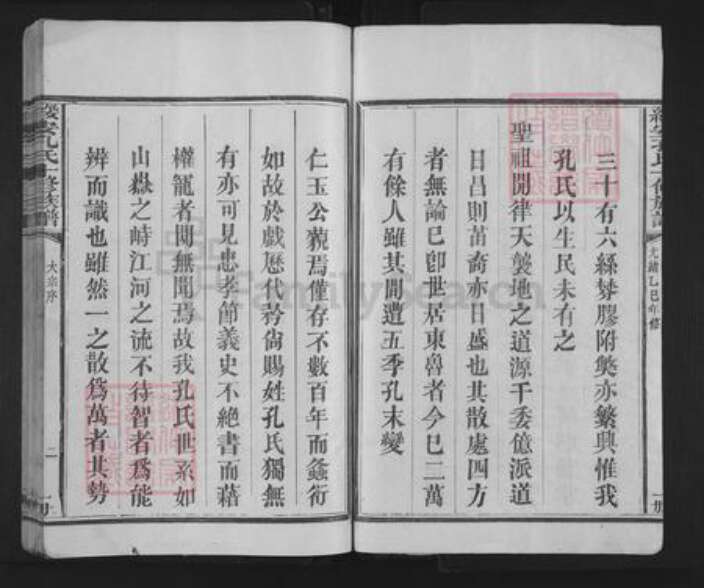 三十有六絲棼膠附獘亦繁興惟我
孔氏以生民未有之
聖祖開律天襲地之道源千委億派道
日昌則苗裔亦日盛也其散處四方
者無論已卽世居東魯者今已二萬
有餘人雖其間遭五季孔末變
光緖乙巳年修
一册
仁玉公藐焉僅存不數百年而螽衍
如故於戲歷代矜尙賜姓孔氏獨無
有亦可見忠孝節義史不絕書而藉
權寵者閴無聞焉故我孔氏世系如
山嶽之峙江河之流不待智者爲能
辨而識也雖然一之散爲萬者其勢
孔氏一修族譜
大宗序
二
一册
FamilySearch